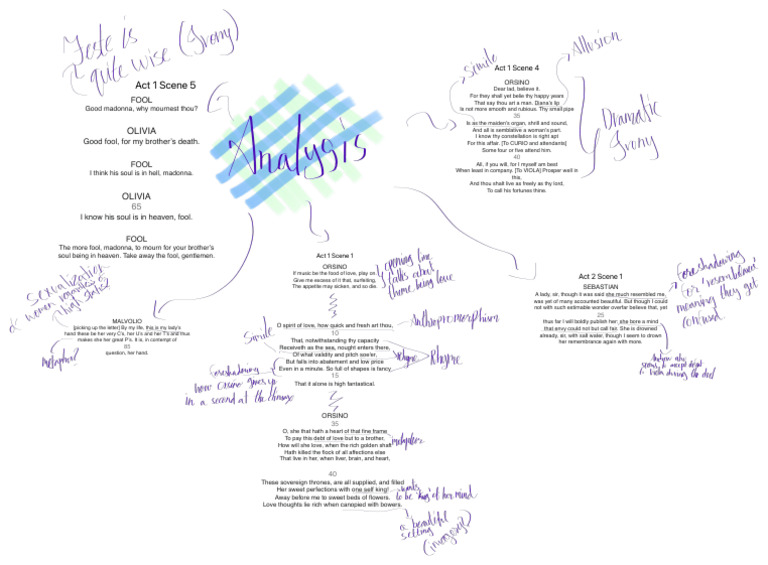 Feste is
quite wise (Irony)
Act 1 Scene 5
FOOL
Good madonna, why mournest thou?
OLIVIA
Good fool, for my brother's death.
FOOL
I think his soul is in hell, madonna.
OLIVIA
65
I know his soul is in heaven, fool.
FOOL
The more fool, madonna, to mourn for your brother's
soul being in heaven. Take away the fool, gentlemen.
Analysis
Simile
Allusion
Act 1 Scene 4
ORSINO
Dear lad, believe it.
For they shall yet belie thy happy years
That say thou art a man. Diana's lip
Is not more smooth and rubious. Thy small pipe
35
Is as the maiden's organ, shrill and sound,
And all is semblative a woman's part.
I know thy constellation is right apt
For this affair. [To CURIO and attendants]
Some four or five attend him.
40
All, if you will, for I myself am best
When least in company. [To VIOLA] Prosper well in
this,
And thou shalt live as freely as thy lord,
To call his fortunes thine.
Dramatic
Irony
Sexualization
women regardless of
high status
MALVOLIO
[picking up the letter] By my life, this is my lady's
hand these be her very C's, her U's and her T's and thus
makes she her great P's. It is, in contempt of
85
question, her hand.
metaphor?
Act 1 Scene 1
ORSINO
If music be the food of love, play on.
Give me excess of it that, surfeiting,
The appetite may sicken, and so die.
opening line
talks about
theme being love
O spirit of love, how quick and fresh art thou,
10
That, notwithstanding thy capacity
Receiveth as the sea, nought enters there,
Of what validity and pitch soe'er,
But falls into abatement and low price
Even in a minute. So full of shapes is fancy
15
That it alone is high fantastical.
Anthropomorphism
Simile
Rhyme
Rhyme
Foreshadowing
how Orsino gives up
in a second at the climax
ORSINO
35
O, she that hath a heart of that fine frame
To pay this debt of love but to a brother,
How will she love, when the rich golden shaft
Hath killed the flock of all affections else
That live in her, when liver, brain, and heart,
metaphor
40
These sovereign thrones, are all supplied, and filled
Her sweet perfections with one self king!
Away before me to sweet beds of flowers.
Love thoughts lie rich when canopied with bowers.
wants
to be "king" of her mind
a beautiful
setting
(imagery)
Act 2 Scene 1
SEBASTIAN
A lady, sir, though it was said she much resembled me,
was yet of many accounted beautiful. But though I could
not with such estimable wonder overfar believe that, yet
25
thus far I will boldly publish her: she bore a mind
that envy could not but call fair. She is drowned
already, sir, with salt water, though I seem to drown
her remembrance again with more.
Foreshadowing
for "resemblance"
meaning they get
confused